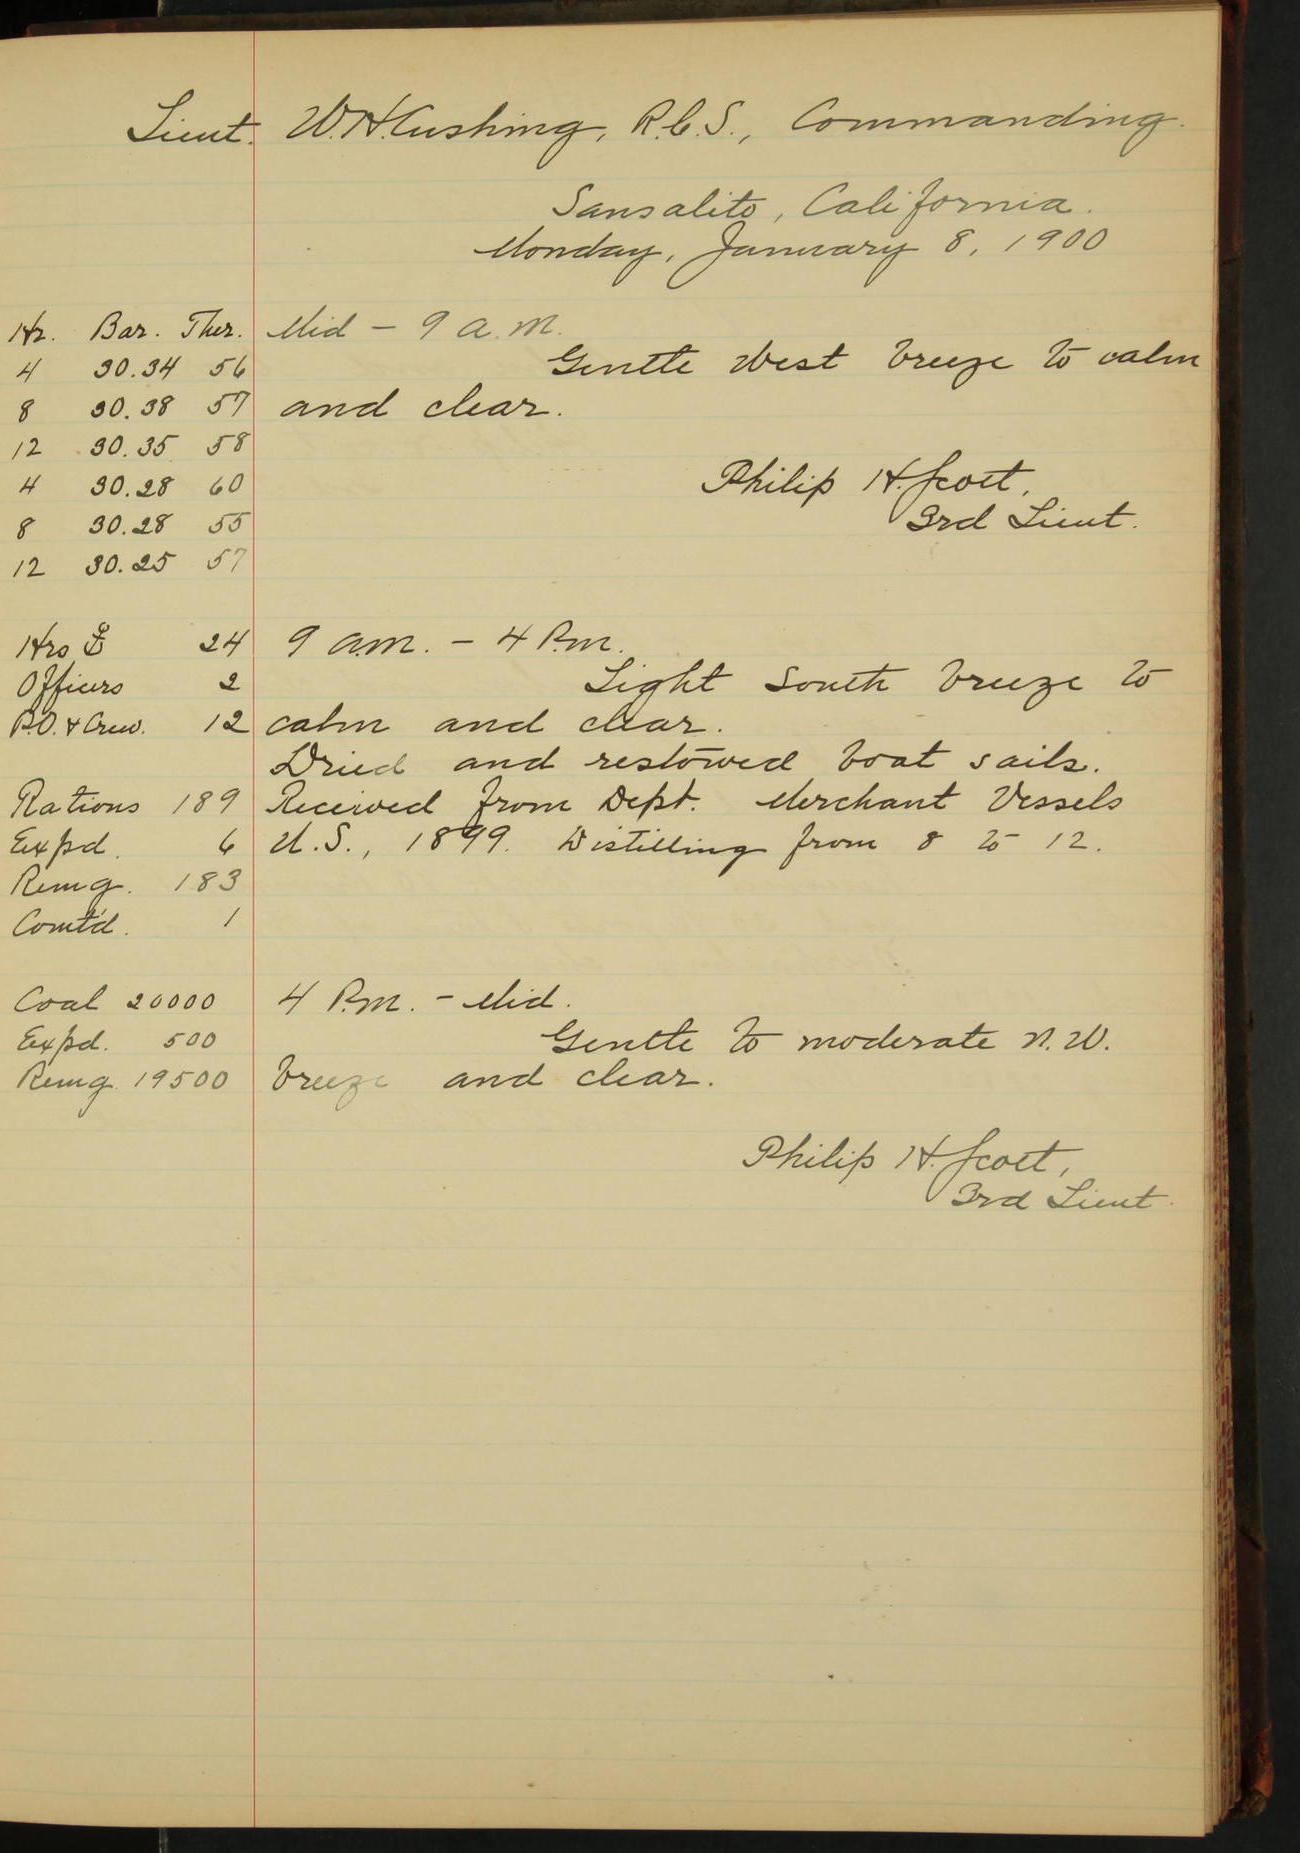 Lieut. W.H. Cushing, R.C.S., Commanding.
Sansalito, California.
Monday, January 8, 1900
Hr. Bar. Ther. Mid - 9 a.m.
4 30.34 56 Gentle West breeze to calm
8 30.38 57 and clear.
12 30.35 58
4 30.28 60 Philip H. Scott,
8 30.28 55 3rd Lieut.
12 30.25 57
Hrs 24 9 a.m. - 4 P.m.
Officers 2 Light South breeze to
P.O. & Crew. 12 calm and clear.
Dried and restowed boat sails.
Rations 189 Received from Dept. Merchant Vessels
Expd. 6 U.S., 1899. Distilling from 8 to 12.
Remg. 183
Comt'd. 1
Coal 20000 4 P.m. - Mid.
Expd. 500 Gentle to moderate N.W.
Remg. 19500 breeze and clear.
Philip H. Scott,
3rd Lieut.